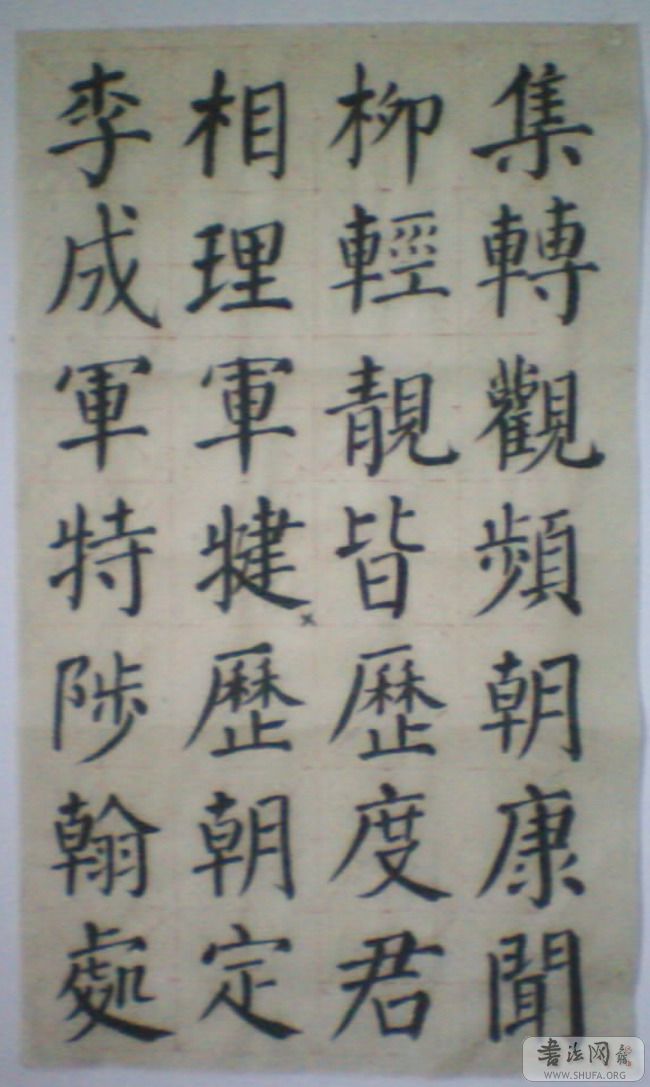 集轉觀頻朝康聞
柳輕靚皆歷度君
相理軍犍歷朝定
李成軍特陟翰處
书法网
WWW.SHUFA.ORG